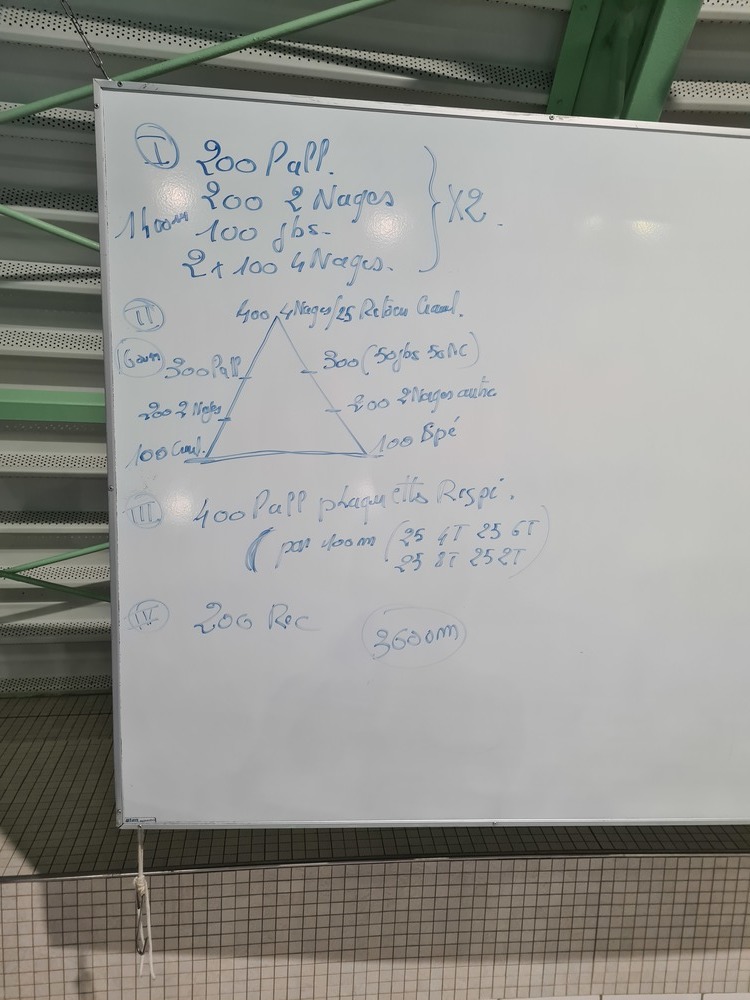 I 200 Pall.
200 2 Nages
1400m 100 jbs.
2x100 4 Nages.
X2
II
400 4 Nages/25 Retour Crawl.
300 Pall
300 (50 jbs 50 NC)
200 2 Nages
200 2 Nages autre
100 Crawl.
100 Spé
III 400 Pall plaquettes Respi.
( par 100m (25 4T 25 6T
25 8T 25 2T)
IV 200 Rec
3600m